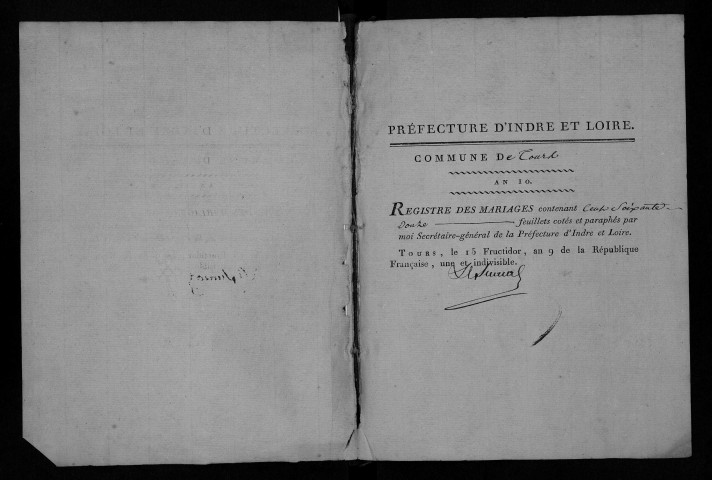 PRÉFECTURE D'INDRE ET LOIRE.
COMMUNE De Tours
AN 10.
REGISTRE DES MARIAGES contenant Cent Soixante
Douze feuillets cotés et paraphés par
moi Secrétaire-général de la Préfecture d'Indre et Loire.
TOURS, le 15 Fructidor, an 9 de la République
Française, une et indivisible.